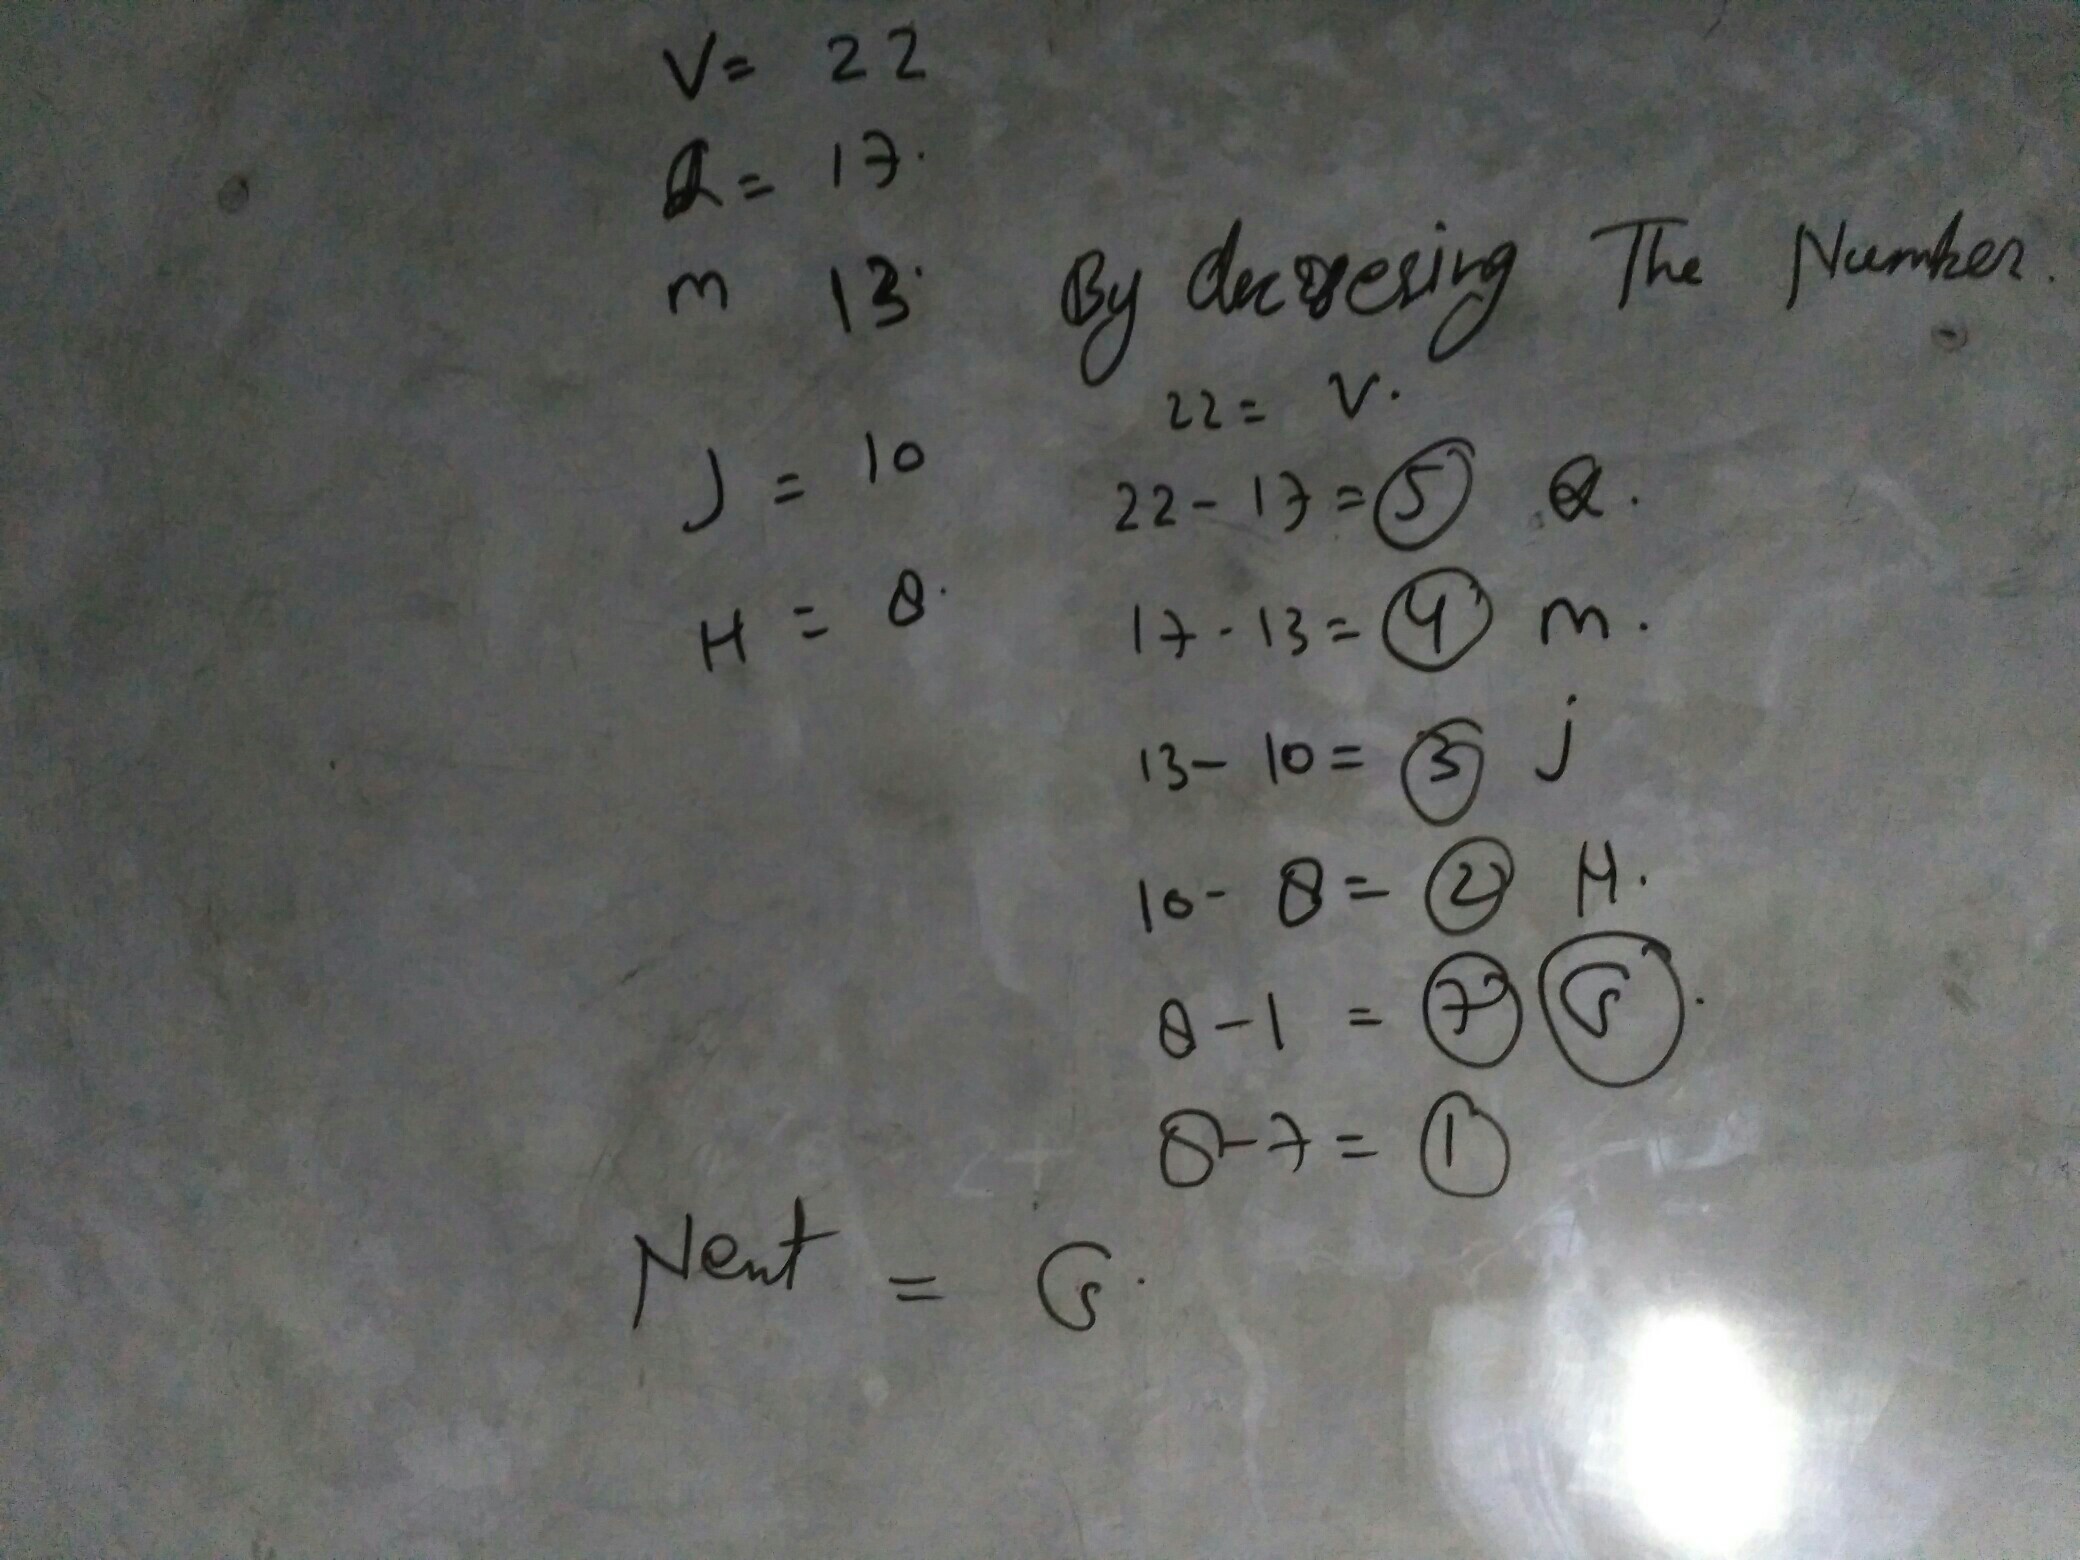 V= 22
Q= 17.
m 13. By decresesing The Number.
22= V.
J = 10
22-17=5 Q.
H = 8.
17-13=4 m.
13-10=3 j
10-8=2 H.
8-1=7 G.
8-7=1
Next = G.